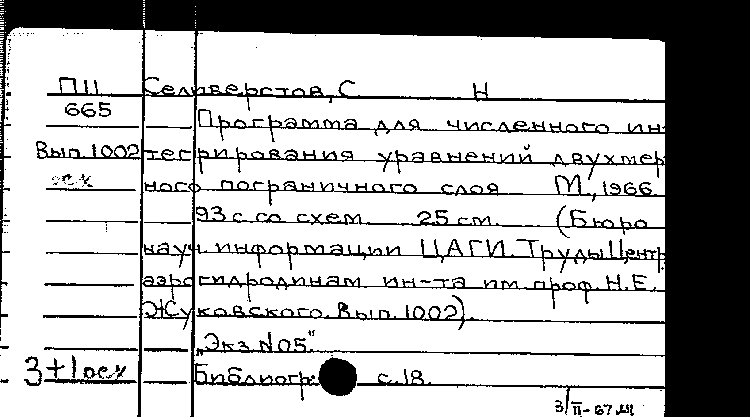 П11 Селиверстов, С Н
665
Программа для численного ин-
Вып. 1002 тегрирования уравнений двухмер
осх ного пограничного слоя М., 1966.
93 с. со схем. 25 см. (Бюро
науч. информации ЦАГИ. Труды Центр.
аэрогидродинам. ин-та им. проф. Н.Е.
Жуковского. Вып. 1002).
„Экз. N05"
3+1осх Библиогр с. 18.
3/II-67